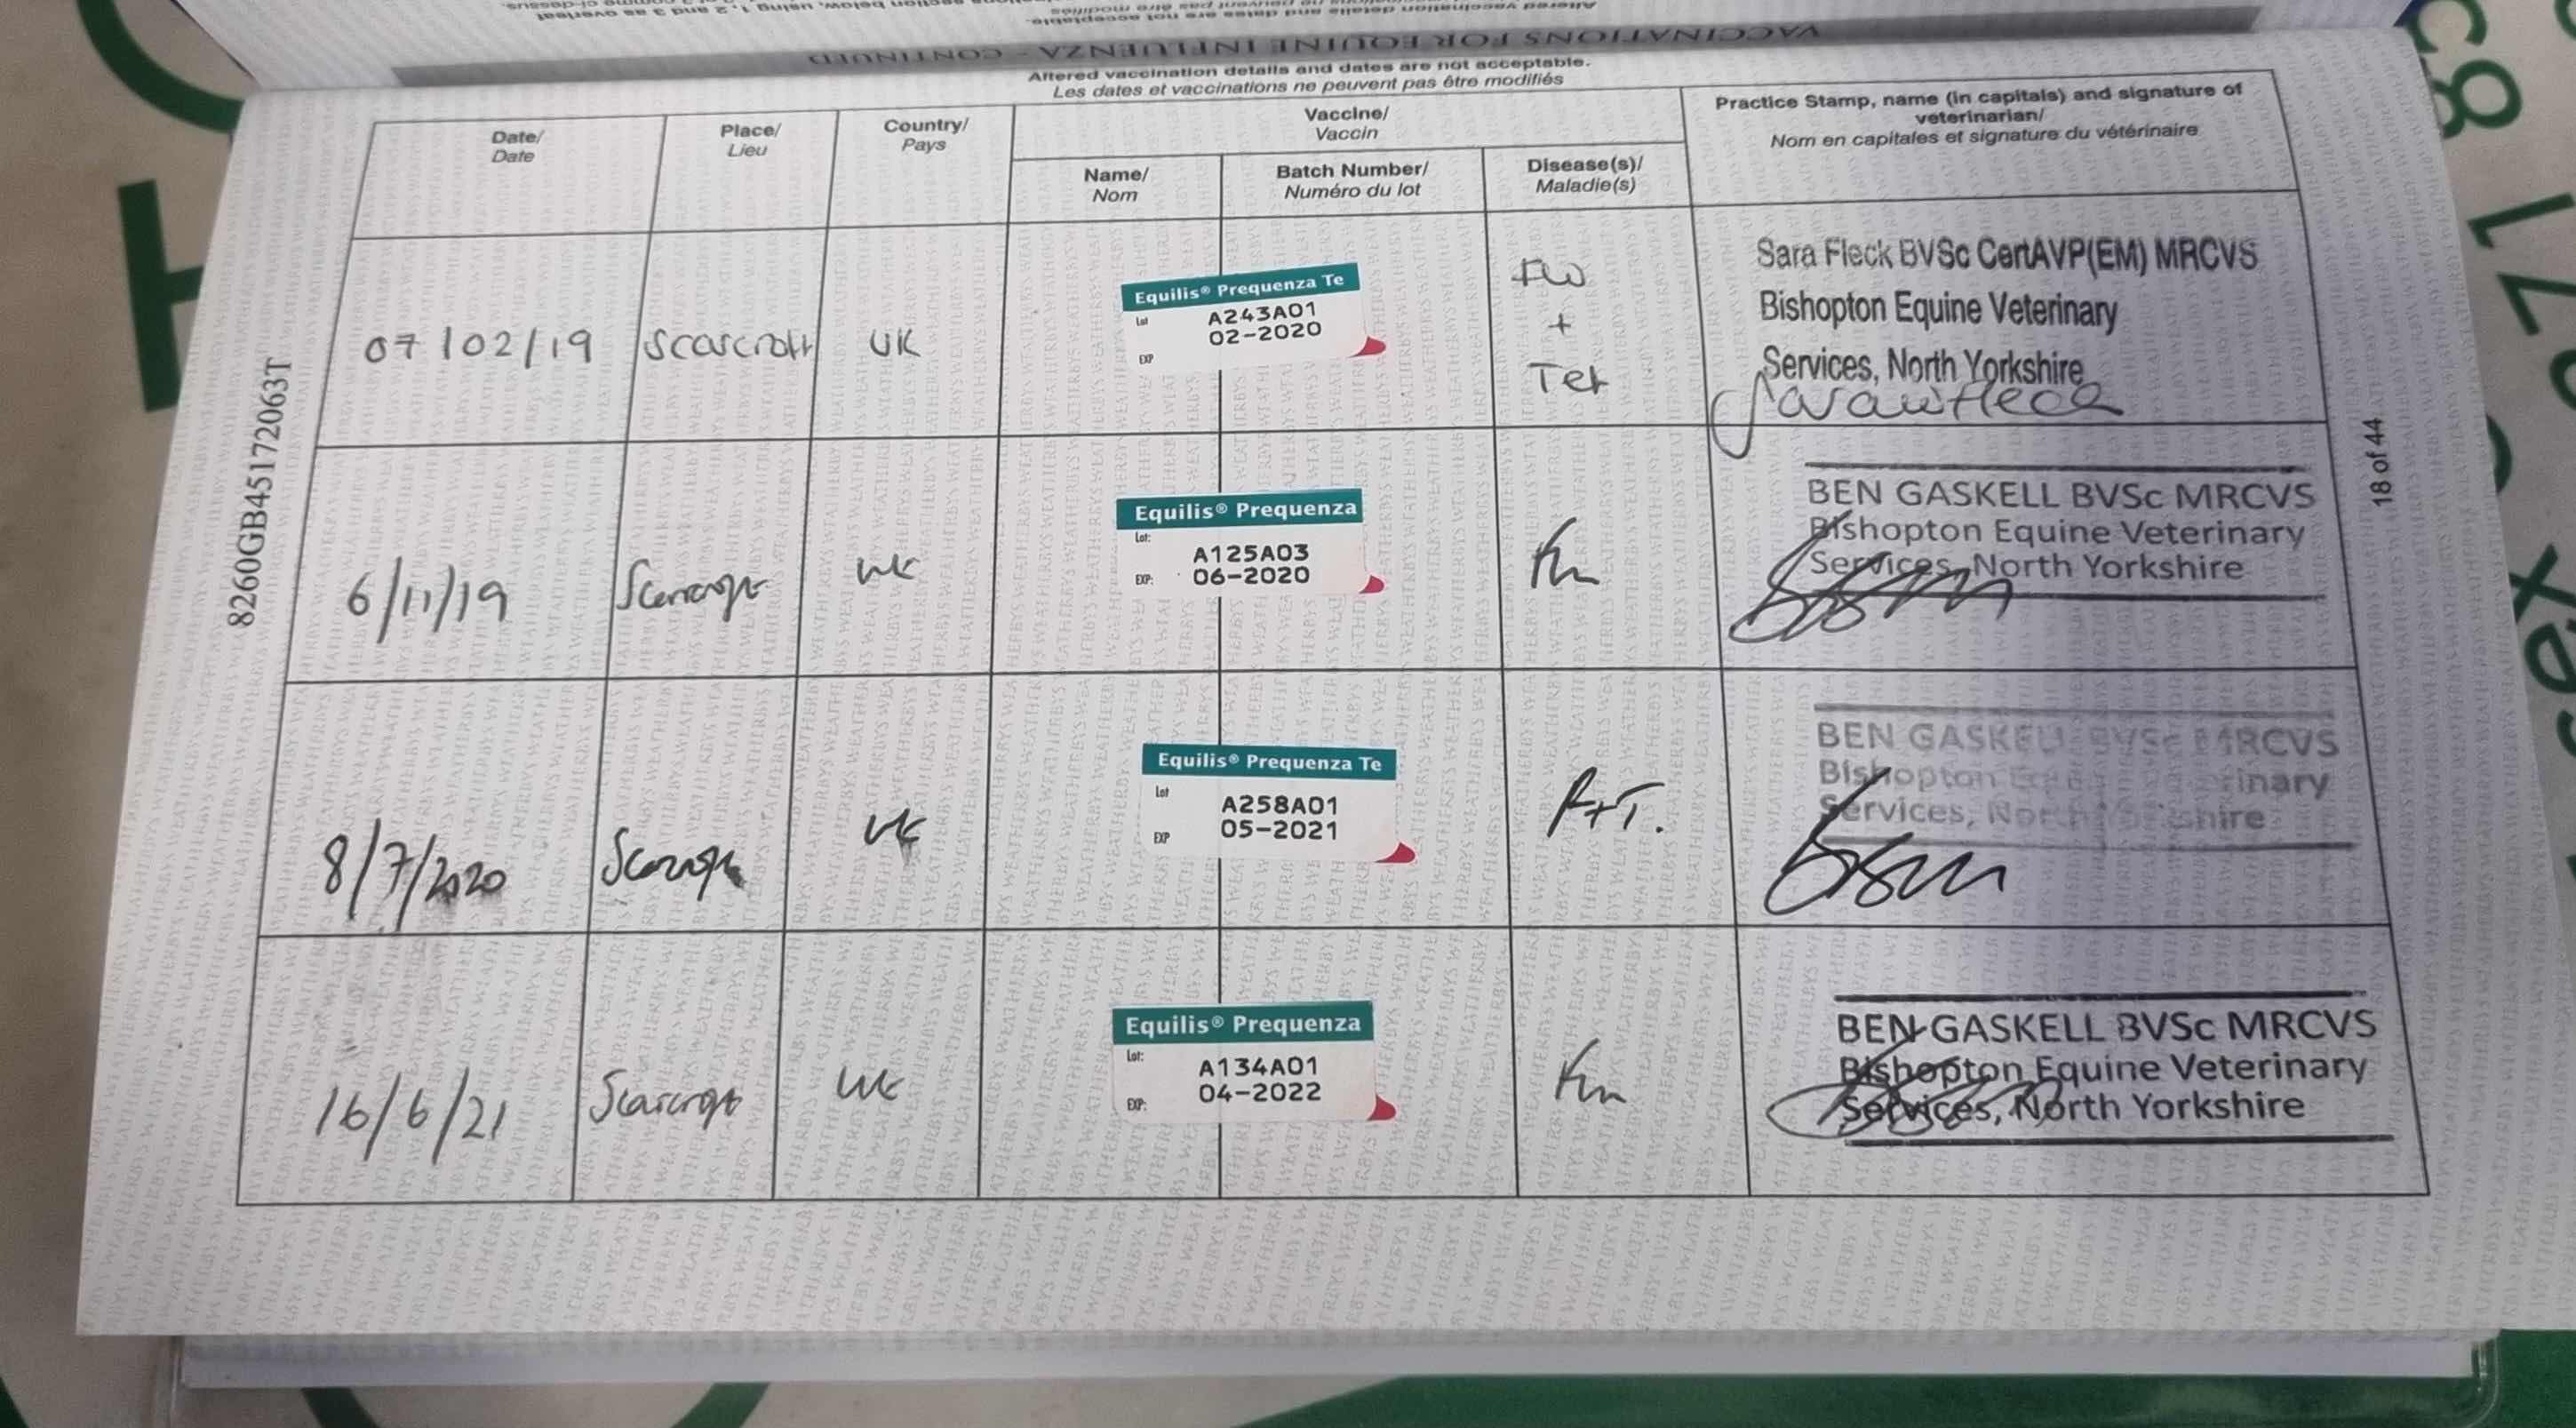 VACCINATIONS FOR EQUINE INFLUENZA - CONTINUED
Altered vaccination details and dates are not acceptable.
Les dates et vaccinations ne peuvent pas être modifiés
Date/
Date
Place/
Lieu
Country/
Pays
Vaccine/
Vaccin
Name/
Nom
Batch Number/
Numéro du lot
Disease(s)/
Maladie(s)
Practice Stamp, name (in capitals) and signature of
veterinarian/
Nom en capitales et signature du vétérinaire
07/02/19
Scarcroft
UK
Equilis® Prequenza Te
Lot A243A01
02-2020
EXP
Flu
+
Tet
Sara Fleck BVSc CertAVP(EM) MRCVS
Bishopton Equine Veterinary
Services, North Yorkshire
6/11/19
Scarcroft
UK
Equilis® Prequenza
Lot: A125A03
EXP: 06-2020
Flu
BEN GASKELL BVSc MRCVS
Bishopton Equine Veterinary
Services, North Yorkshire
8/7/2020
Scarcroft
UK
Equilis® Prequenza Te
Lot A258A01
EXP 05-2021
F+T.
BEN GASKELL BVSc MRCVS
Bishopton Equine Veterinary
Services, North Yorkshire
16/6/21
Scarcroft
UK
Equilis® Prequenza
Lot: A134A01
EXP: 04-2022
Flu
BEN GASKELL BVSc MRCVS
Bishopton Equine Veterinary
Services, North Yorkshire
8260GB45172063T
18 of 44